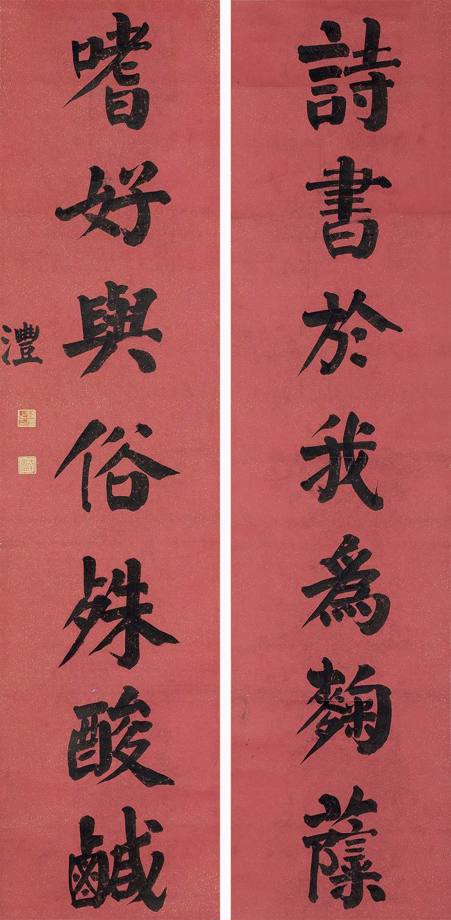 詩書於我爲麴蘖
嗜好與俗殊酸鹹
澧